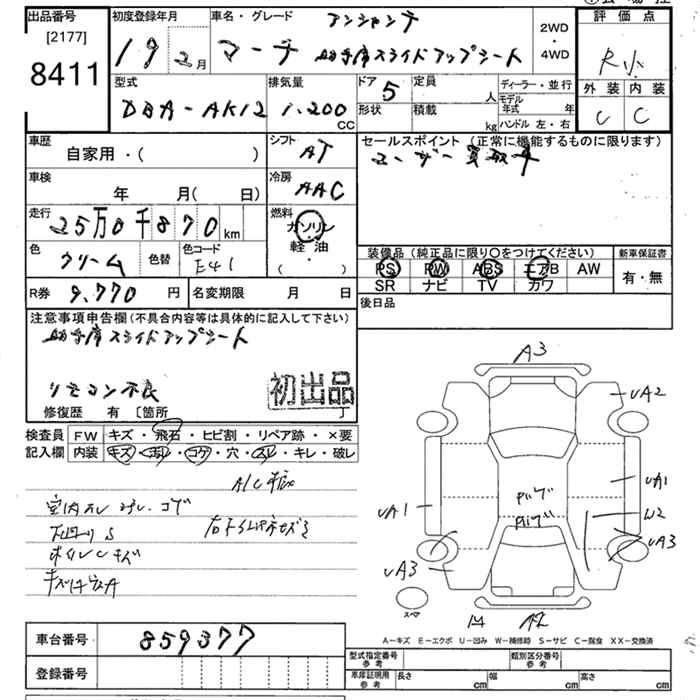 出品番号
[2177]
8411
初度登録年月
19 2月
車名・グレード
アンシャンテ
マーチ 助手席スライドアップシート
2WD
・
4WD
評価点
R小
外装 内装
C C
型式
DBA-AK12
排気量
1,200 CC
ドア
5
形状
定員
人
積載
kg
ディーラー・並行
モデル年式 年
ハンドル 左・右
車歴
自家用・( )
シフト
AT
セールスポイント(正常に機能するものに限ります)
ユーザー買取車
車検
年 月( 日)
冷房
AAC
走行
25万0千870km
燃料
ガソリン
・
軽油
( )
色
クリーム
色替
色コード
E41
装備品(純正品に限り○をつけてください)
PS PW ABS エアB AW
SR ナビ TV カワ
新車保証書
有・無
R券 9,770円
名変期限 月 日
後日品
注意事項申告欄(不具合内容等は具体的に記入して下さい)
助手席スライドアップシート
リモコン不良
初出品
修復歴 有 〔箇所 〕
検査員
記入欄
FW キズ・飛石・ヒビ割・リペア跡・×要
内装 キズ・汚レ・コゲ・穴・スレ・キレ・破レ
室内
下回りS
ホイルCキズ
A3
UA2
UA1
UA1
W2
UA3
UA3
スペア
A2
A-キズ E-エクボ U-凹み W-補修跡 S-サビ C-腐食 XX-交換済
車台番号
859377
登録番号
型式指定番号
参考
類別区分番号
参考
車庫証明用
参考
長さ cm
幅 cm
高さ cm